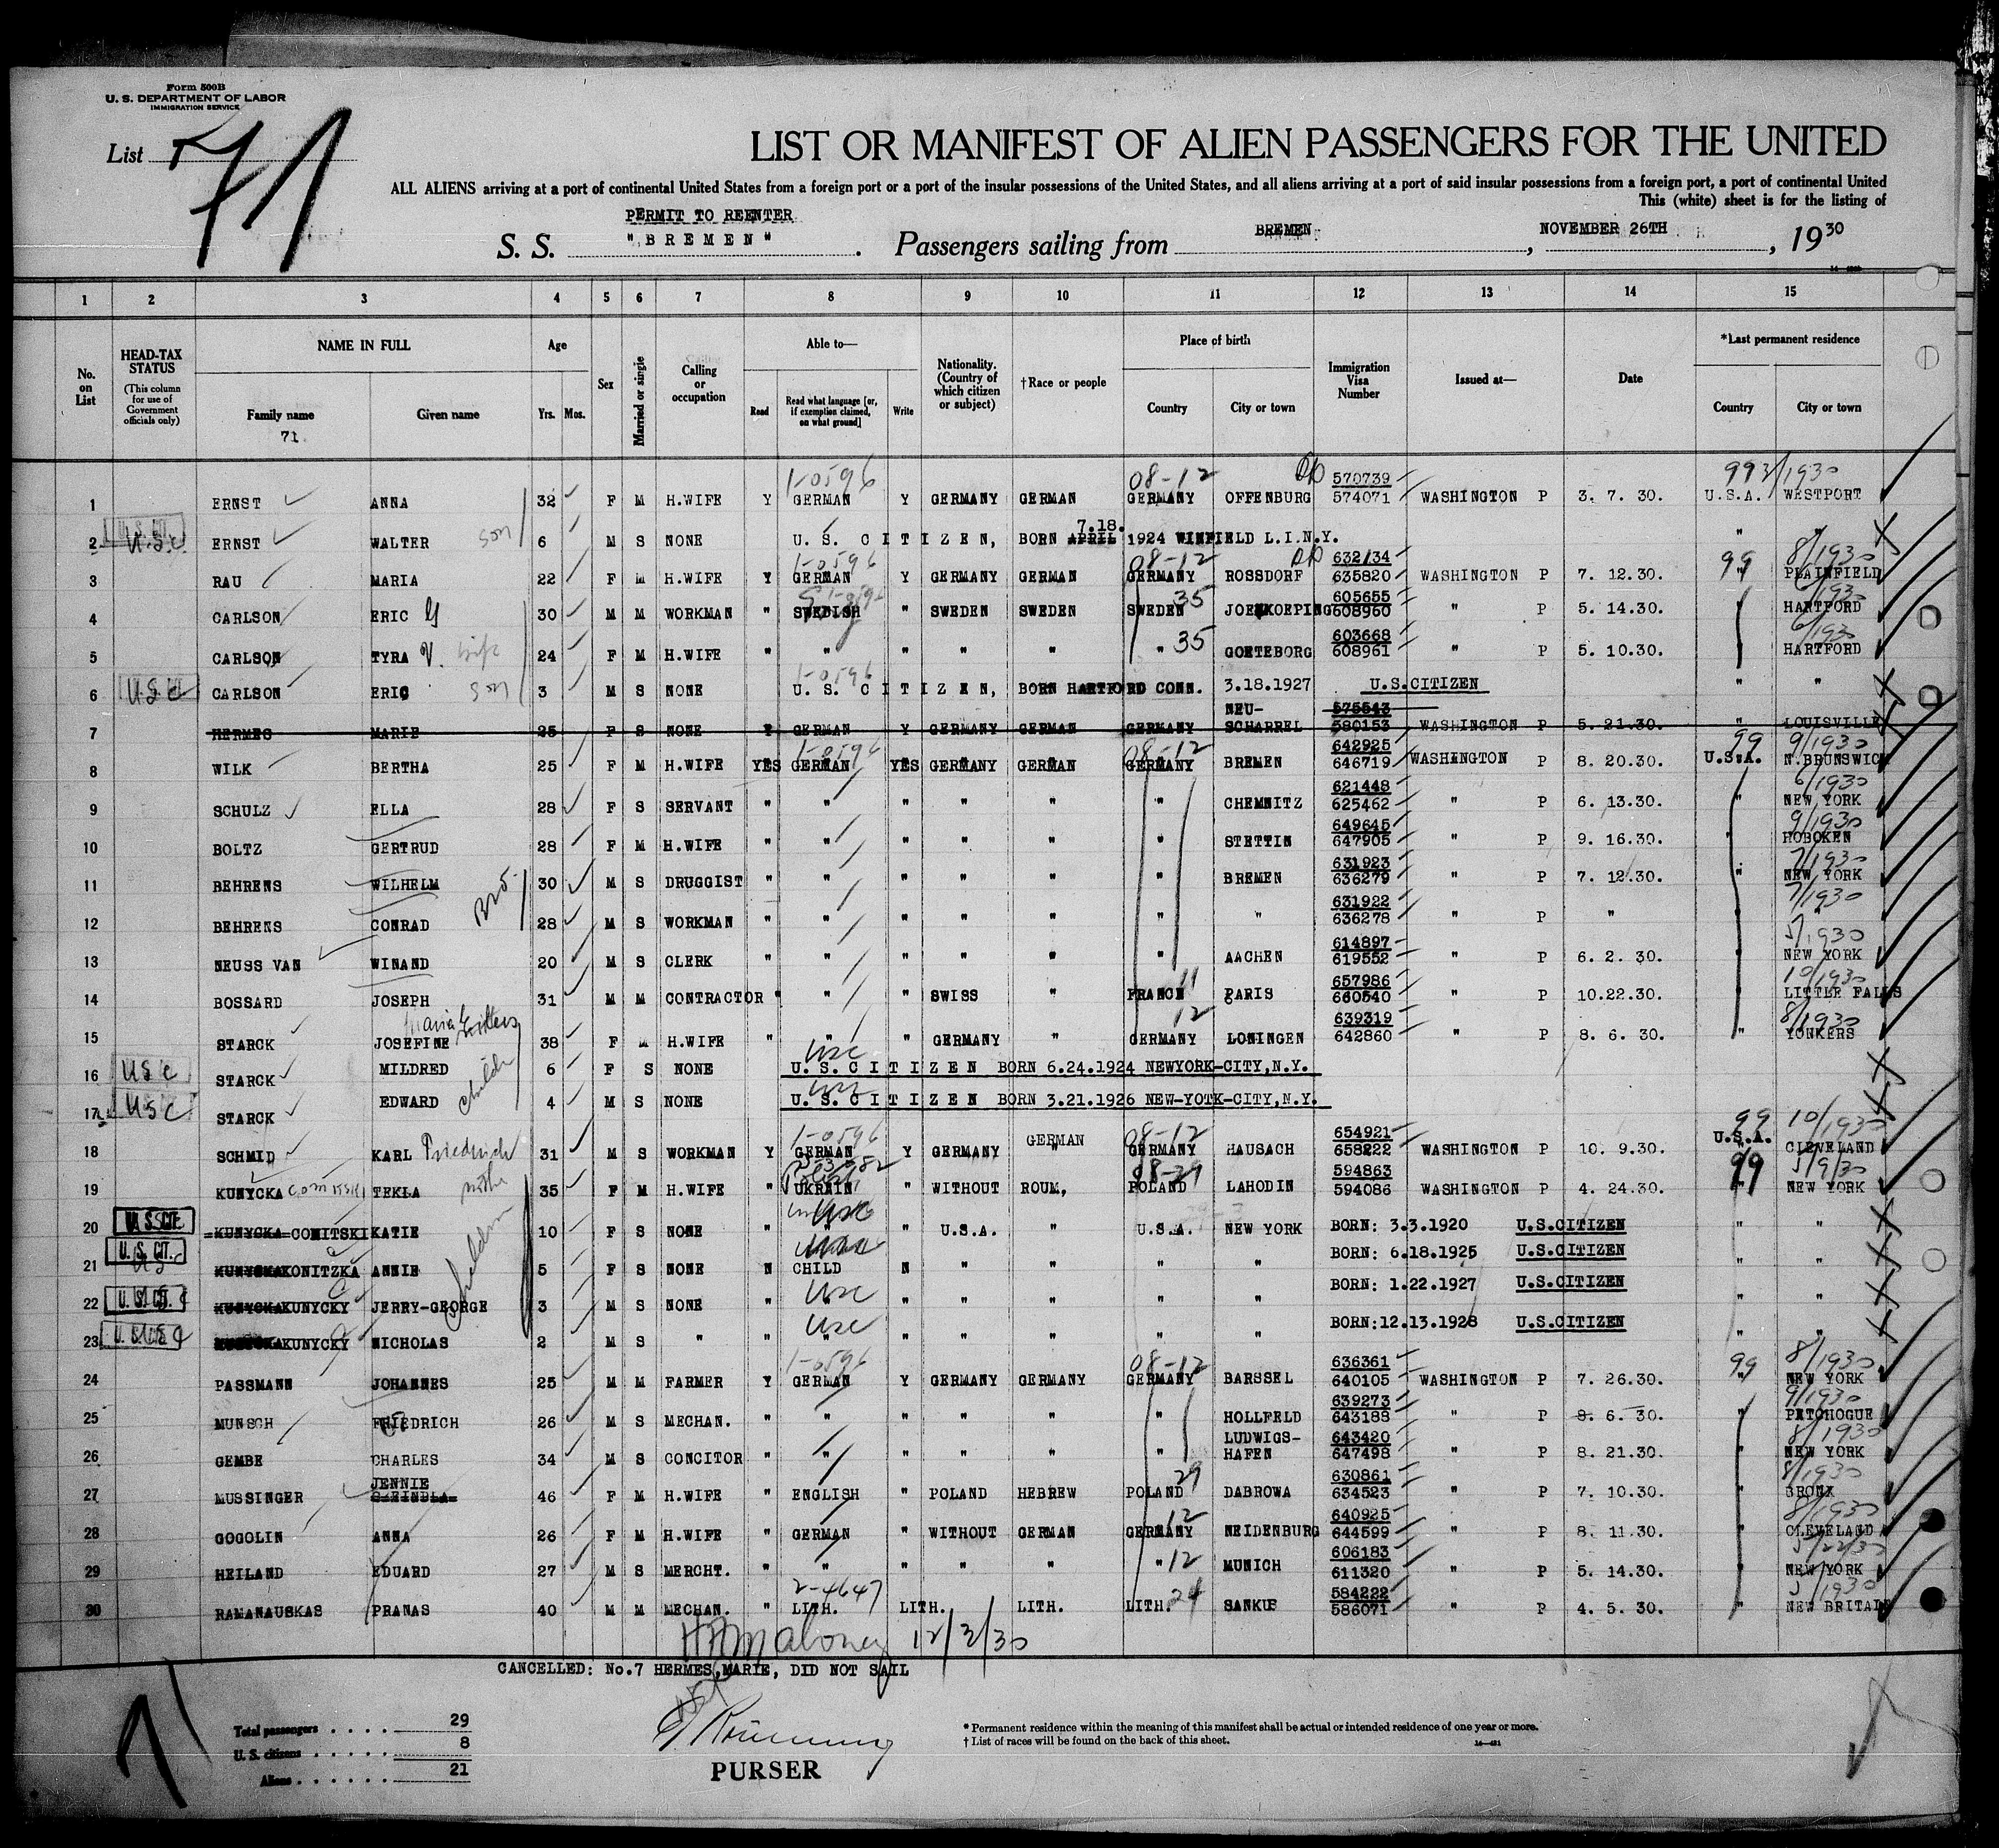 Form 500B
U. S. DEPARTMENT OF LABOR
IMMIGRATION SERVICE
List 71
LIST OR MANIFEST OF ALIEN PASSENGERS FOR THE UNITED
ALL ALIENS arriving at a port of continental United States from a foreign port or a port of the insular possessions of the United States, and all aliens arriving at a port of said insular possessions from a foreign port, a port of continental United
This (white) sheet is for the listing of
PERMIT TO REENTER
S. S. "BREMEN". Passengers sailing from BREMEN, NOVEMBER 26TH, 1930
1 2 3 4 5 6 7 8 9 10 11 12 13 14 15
No. on List
HEAD-TAX STATUS (This column for use of Government officials only)
NAME IN FULL Family name Given name
71
Age Yrs. Mos.
Sex
Married or single
Calling or occupation
Able to— Read Read what language [or, if exemption claimed, on what ground] Write
Nationality. (Country of which citizen or subject)
†Race or people
Place of birth Country City or town
Immigration Visa Number
Issued at—
Date
*Last permanent residence Country City or town
1-0596 08-12 570739 99 3/1930
1 ERNST ANNA 32 F M H.WIFE Y GERMAN Y GERMANY GERMAN GERMANY OFFENBURG 574071 WASHINGTON P 3. 7. 30. U.S.A. WESTPORT
7.18.
2 U.S.C ERNST WALTER son 6 M S NONE U. S. CITIZEN, BORN APRIL 1924 WINFIELD L.I.N.Y. " "
1-0596 08-12 632134 99 8/1930
3 RAU MARIA 22 F M H.WIFE Y GERMAN Y GERMANY GERMAN GERMANY ROSSDORF 635820 WASHINGTON P 7. 12.30. " PLAINFIELD
35 605655
4 CARLSON ERIC G 30 M M WORKMAN " SWEDISH " SWEDEN SWEDEN SWEDEN JOENKOEPING 608960 " P 5. 14.30. " HARTFORD
35 603668 6/1930
5 CARLSON TYRA V. wife 24 F M H.WIFE " " " " " " GOETEBORG 608961 " P 5. 10.30. HARTFORD
1-0596
6 USC CARLSON ERIC son 3 M S NONE U. S. CITIZEN, BORN HARTFORD CONN. 3.18.1927 U.S.CITIZEN " "
NEU- 575543
7 HERMES MARIE 25 F S NONE Y GERMAN Y GERMANY GERMAN GERMANY SCHARREL 580153 WASHINGTON P 5. 21.30. " LOUISVILLE
1-0596 08-12 642925 99 9/1930
8 WILK BERTHA 25 F M H.WIFE YES GERMAN YES GERMANY GERMAN GERMANY BREMEN 646719 WASHINGTON P 8. 20.30. U.S.A. N.BRUNSWICK
621448 6/1930
9 SCHULZ ELLA 28 F S SERVANT " " " " " " CHEMNITZ 625462 " P 6. 13.30. " NEW YORK
649645 9/1930
10 BOLTZ GERTRUD 28 F M H.WIFE " " " " " " STETTIN 647905 " P 9. 16.30. " HOBOKEN
631923 7/1930
11 BEHRENS WILHELM 30 M S DRUGGIST " " " " " " BREMEN 636279 " P 7. 12.30. " NEW YORK
Bro. 631922 7/1930
12 BEHRENS CONRAD 28 M S WORKMAN " " " " " " 636278 " P " "
614897 5/1930
13 NEUSS VAN WINAND 20 M S CLERK " " " " " " AACHEN 619552 " P 6. 2. 30. " NEW YORK
11 657986 10/1930
14 BOSSARD JOSEPH 31 M M CONTRACTOR " " " SWISS " FRANCE PARIS 660540 " P 10.22.30. " LITTLE FALLS
Maria 12 639319 8/1930
15 STARCK JOSEFINE 38 F M H.WIFE " " " GERMANY " GERMANY LONINGEN 642860 " P 8. 6. 30. " YONKERS
usc
16 USC STARCK MILDRED 6 F S NONE U. S. CITIZEN BORN 6.24.1924 NEWYORK-CITY,N.Y.
usc
17 USC STARCK EDWARD 4 M S NONE U. S. CITIZEN BORN 3.21.1926 NEW-YOTK-CITY,N.Y.
1-0596 08-12 654921 99 10/1930
18 SCHMID KARL Friedrich 31 M S WORKMAN Y GERMAN Y GERMANY GERMAN GERMANY HAUSACH 658222 WASHINGTON P 10. 9.30. U.S.A. CLEVELAND
594863 99
19 KUNYCKA TEKLA 35 F M H.WIFE " UKRAIN " WITHOUT ROUM, POLAND LAHODIN 594086 WASHINGTON P 4. 24.30. NEW YORK
20 U.S.CIT. KUNYCKA COMITSKI KATIE 10 F S NONE " " " U.S.A. " U.S.A. NEW YORK BORN: 3.3.1920 U.S.CITIZEN " "
21 U.S.CIT. KUNYCKA KONITZKA ANNIE 5 F S NONE N CHILD N " " " " BORN: 6.18.1925 U.S.CITIZEN " "
children
usc
22 U.S.CIT. KUNYCKA KUNYCKY JERRY-GEORGE 3 M S NONE " " " " " " " BORN: 1.22.1927 U.S.CITIZEN " "
usc
23 KUNYCKY NICHOLAS 2 M S " " " " " " " " BORN:12.13.1928 U.S.CITIZEN " "
1-0596 08-12 636361 99 8/1930
24 PASSMANN JOHANNES 25 M M FARMER Y GERMAN Y GERMANY GERMANY GERMANY BARSSEL 640105 WASHINGTON P 7. 26.30. " NEW YORK
639273 9/1930
25 MUNSCH FRIEDRICH 26 M S MECHAN. " " " " " " HOLLFELD 643188 " P 8. 6. 30. " PATCHOGUE
LUDWIGS- 643420 8/1930
26 GEMBE CHARLES 34 M S CONCITOR " " " " " " HAFEN 647498 " P 8. 21.30. " NEW YORK
JENNIE 29 630861 8/1930
27 MUSSINGER SHEINDLA 46 F M H.WIFE " ENGLISH " POLAND HEBREW POLAND DABROWA 634523 " P 7. 10.30. " BRONX
12 640925 8/1930
28 GOGOLIN ANNA 26 F M H.WIFE " GERMAN " WITHOUT GERMAN GERMANY NEIDENBURG 644599 " P 8. 11.30. " CLEVELAND
606183 5/22/30
29 HEILAND EDUARD 27 M S MERCHT. " " " " " " 12 MUNICH 611320 " P 5. 14.30. " NEW YORK
2-4647 24 584222 5/1930
30 RAMANAUSKAS PRANAS 40 M M MECHAN. " LITH. LITH. LITH. LITH. SANKUE 586071 " P 4. 5. 30. " NEW BRITAIN
HAMahoney 12/2/30
CANCELLED: No.7 HERMES,MARIE, DID NOT SAIL
Total passengers . . . . 29
U. S. citizens . . . . . 8
Aliens . . . . . . 21
PURSER
* Permanent residence within the meaning of this manifest shall be actual or intended residence of one year or more.
† List of races will be found on the back of this sheet.